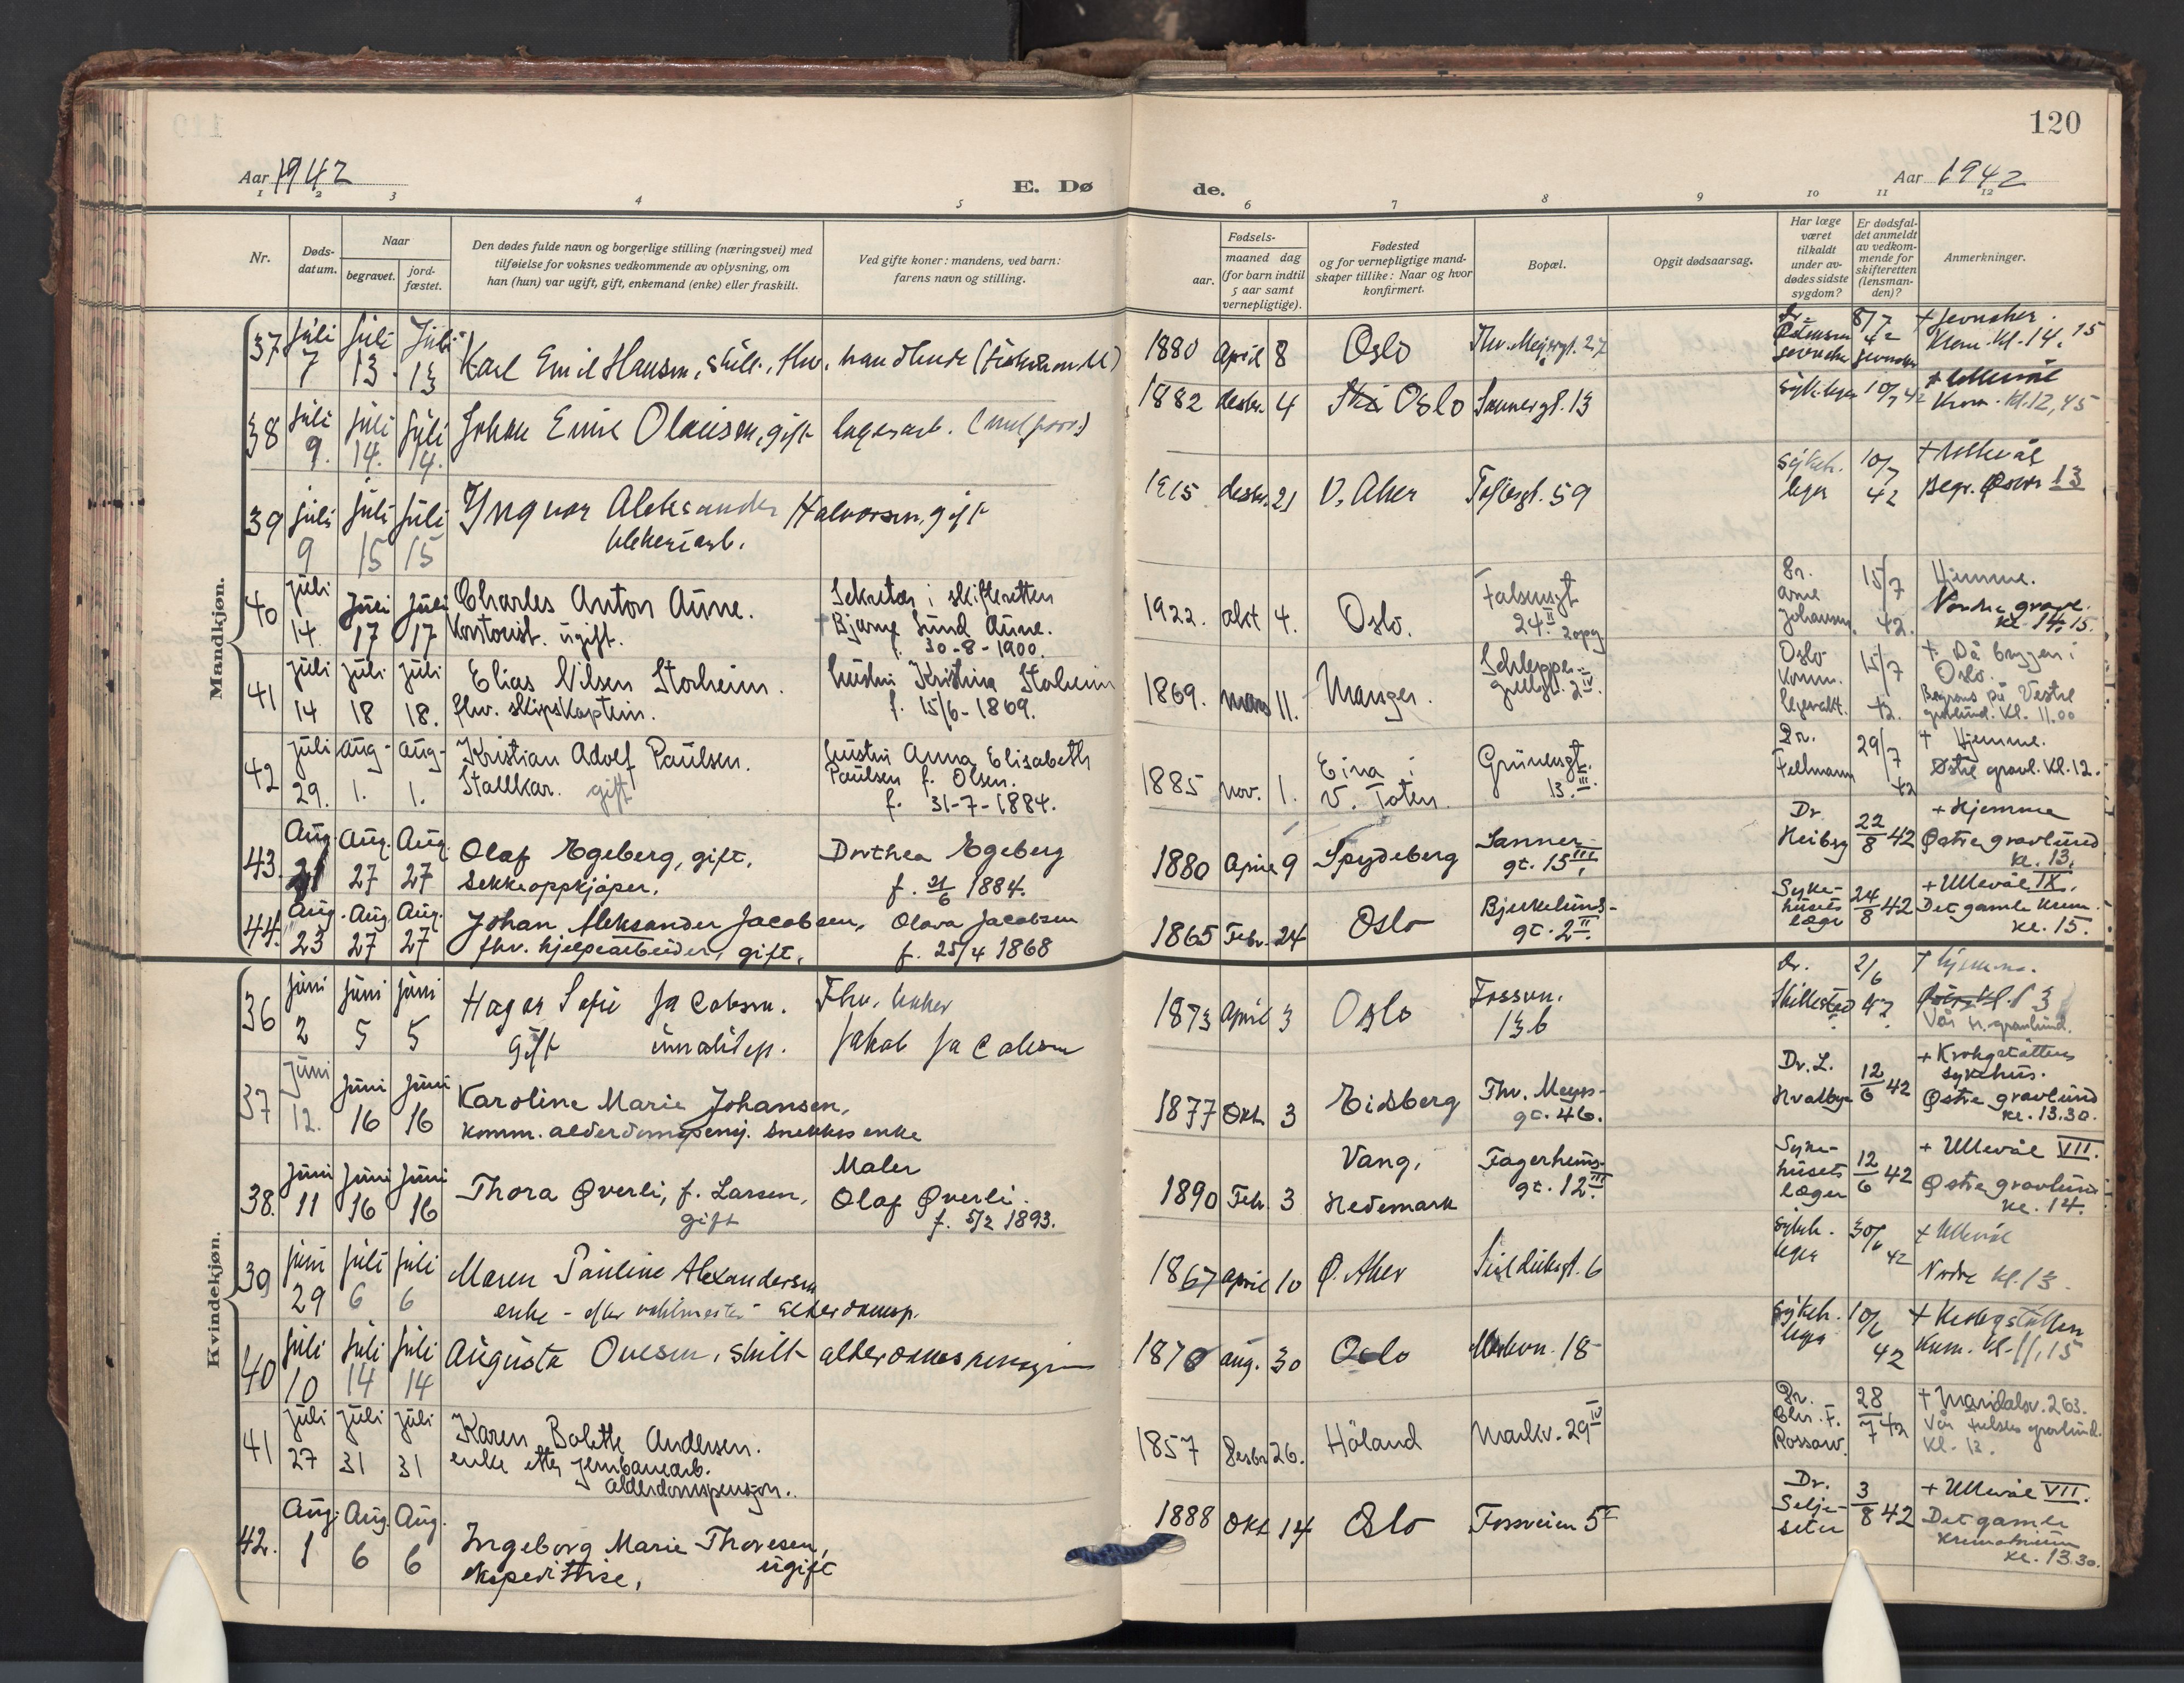 120
Aar 1942
E. Dø
de.
Aar 1942
1 2 3 4 5 6 7 8 9 10 11 12
Nr.
Døds-
datum.
Naar
begravet.
jord-
fæstet.
Den dødes fulde navn og borgerlige stilling (næringsvei) med
tilføielse for voksnes vedkommende av oplysning, om
han (hun) var ugift, gift, enkemand (enke) eller fraskilt.
Ved gifte koner: mandens, ved barn:
farens navn og stilling.
Fødsels-
aar.
maaned dag
(for barn indtil
5 aar samt
vernepligtige).
Fødested
og for vernepligtige mand-
skaper tillike: Naar og hvor
konfirmert.
Bopæl.
Opgit dødsaarsag.
Har læge
været
tilkaldt
under av-
dødes sidste
sygdom?
Er dødsfal-
det anmeldt
av vedkom-
mende for
skifteretten
(lensman-
den)?
Anmerkninger.
Mandkjøn.
37 juli 7 juli 13 juli 13
Karl Emil Hansen, skilt, fhv.
1880 April 8 Oslo Thv. Meyersgt. 27
8/7 42
Krem. kl. 14.15
38 juli 9. juli 14. juli 14.
Johan Emil Olausen, gift lagerarb.
1882 desbr. 4 Oslo Sannergt. 13
10/7 42
+ Ullevål
Krem. kl. 12,45
39 juli 9 juli 15 juli 15
Yngvar Aleksander Halvorsen, gift
blikkeriarb.
1915 desbr. 21 V. Aker Toftesgt. 59
sykeh.
leger
10/7
42
+ Ullevål
Begr. Østre 13
40 juli 14. juli 17 juli 17
Charles Anton Aune.
Kontorist. ugift.
Sekretær i skifteretten
Bjarne Sund Aune.
f. 30-8-1900.
1922. okt 4. Oslo.
Falsensgt
24 II 2 opg
Dr.
Arne
Johansen.
15/7
42.
Hjemme.
Nordre gravl.
kl. 14.15.
41 juli 14 juli 18 juli 18.
Elias Nilsen Storheim.
fhv. skipskaptein.
hustru Kristina Storheim
f. 15/6-1869.
1869. mars 11. Manger.
Schleppe-
grellsgt. 2 IV.
Oslo
Komm.
legevakt.
15/7
42.
+ På bryggen i
Oslo.
Begraves på Vestre
gravlund. Kl. 11.00
42 juli 29. aug. 1. aug. 1.
Kristian Adolf Paulsen.
Stallkar. gift
hustru Anna Elisabeth
Paulsen f. Olsen.
f. 31-7-1884.
1885 nov. 1.
Eina i
V. Toten.
Grünersgt.
13. III.
Dr.
Fellmann
29/7
42
+ Hjemme.
Østre gravl. kl. 12.
43. Aug. 21 Aug. 27 Aug. 27
Olaf Egeberg, gift,
Sekkeoppkjøper.
Dorthea Egeberg
f. 21/6 1884.
1880 April 9 Spydeberg
Sanner-
gt. 15 III,
Dr.
Heiberg
22/8 42
+ Hjemme
Østre gravlund
kl. 13.
44. Aug. 23 Aug. 27 Aug. 27
Johan Aleksander Jacobsen,
fhv. hjelpearbeider, gift,
Olava Jacobsen
f. 25/4 1868
1865 Febr. 24 Oslo
Bjerkelunds-
gt. 2 II.
Syke-
husets
læge
24/8 42
+ Ullevål IX.
Det gamle krem.
kl. 15.
Kvindekjøn.
36 juni 2 juni 5 juni 5
Hagar Sofie Jacobsen.
gift
Fhv.
Jakob Jacobsen
1873 April 3 Oslo
Fossvn.
13b
Dr.
2/6
42.
+ hjemme.
Vår fr. gravlund.
37 Juni 12. Juni 16 Juni 16
Karoline Marie Johansen,
komm. alderdomspensj. snekkers enke
1877 Okt. 3 Eidsberg
Thv. Meyers-
gt. 46.
Dr. L.
Hvalbye
12/6 42
+ Krohgstøttens
sykehus.
Østre gravlund
kl. 13.30.
38. Juni 11 Juni 16 Juni 16
Thora Øverli, f. Larsen,
gift
Maler
Olaf Øverli.
f. 5/2 1893.
1890 Feb. 3
Vang,
Hedemark
Fagerheims-
gt. 12 III.
Syke-
husets
læger
12/6 42
+ Ullevål VII.
Østre gravlund
kl. 14.
39 juni 29 juli 6 juli 6
Maren Pauline Alexandersen
enke - efter vaktmester - alderdomsp.
1867 April 10 Ø. Aker Seilduksgt. 6
sykeh.
leger
30/6
42
+ Ullevål
Nordre kl. 13.
40 juli 10 juli 14 juli 14
Augusta Ovesen, skilt alderdomspensjon
1870 aug. 30 Oslo 18
sykeh.
leger
10/6
42
+ Krohgstøtten
Krem. kl. 11,15
41 juli 27 juli 31 juli 31
Karen Bolette Andersen.
enke etter jernbanearb.
alderdomspensjon.
1857 Desbr 26. Høland Markv. 29 IV
Dr.
Chr. F.
Rossow.
28/7 42
+ Maridalsv. 263.
Vår Frelsers gravlund.
kl. 12.
42. Aug. 1 Aug. 6 Aug. 6
Ingeborg Marie Thoresen,
ekspeditrise, ugift
1888 Okt 14 Oslo Fossveien 5 I
Dr.
Selje-
seter
3/8 42
+ Ullevål VII.
Det gamle
krematorium
kl. 13.30.